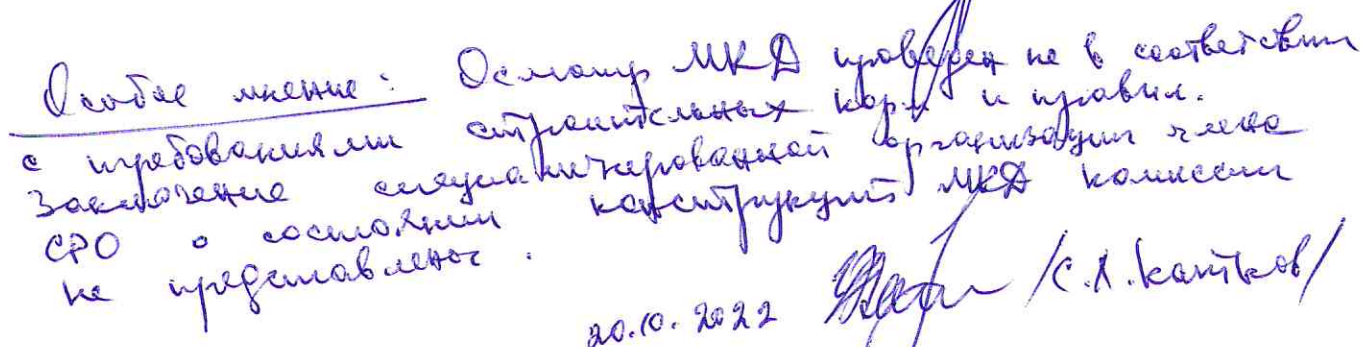 Особое мнение: Осмотр МКД проведен не в соответствии
с требованиями строительных норм и правил.
Заключение специализированной организации члена
СРО о состоянии конструкций МКД комиссии
не представлены.
20.10.2022 /С.А. Катков/